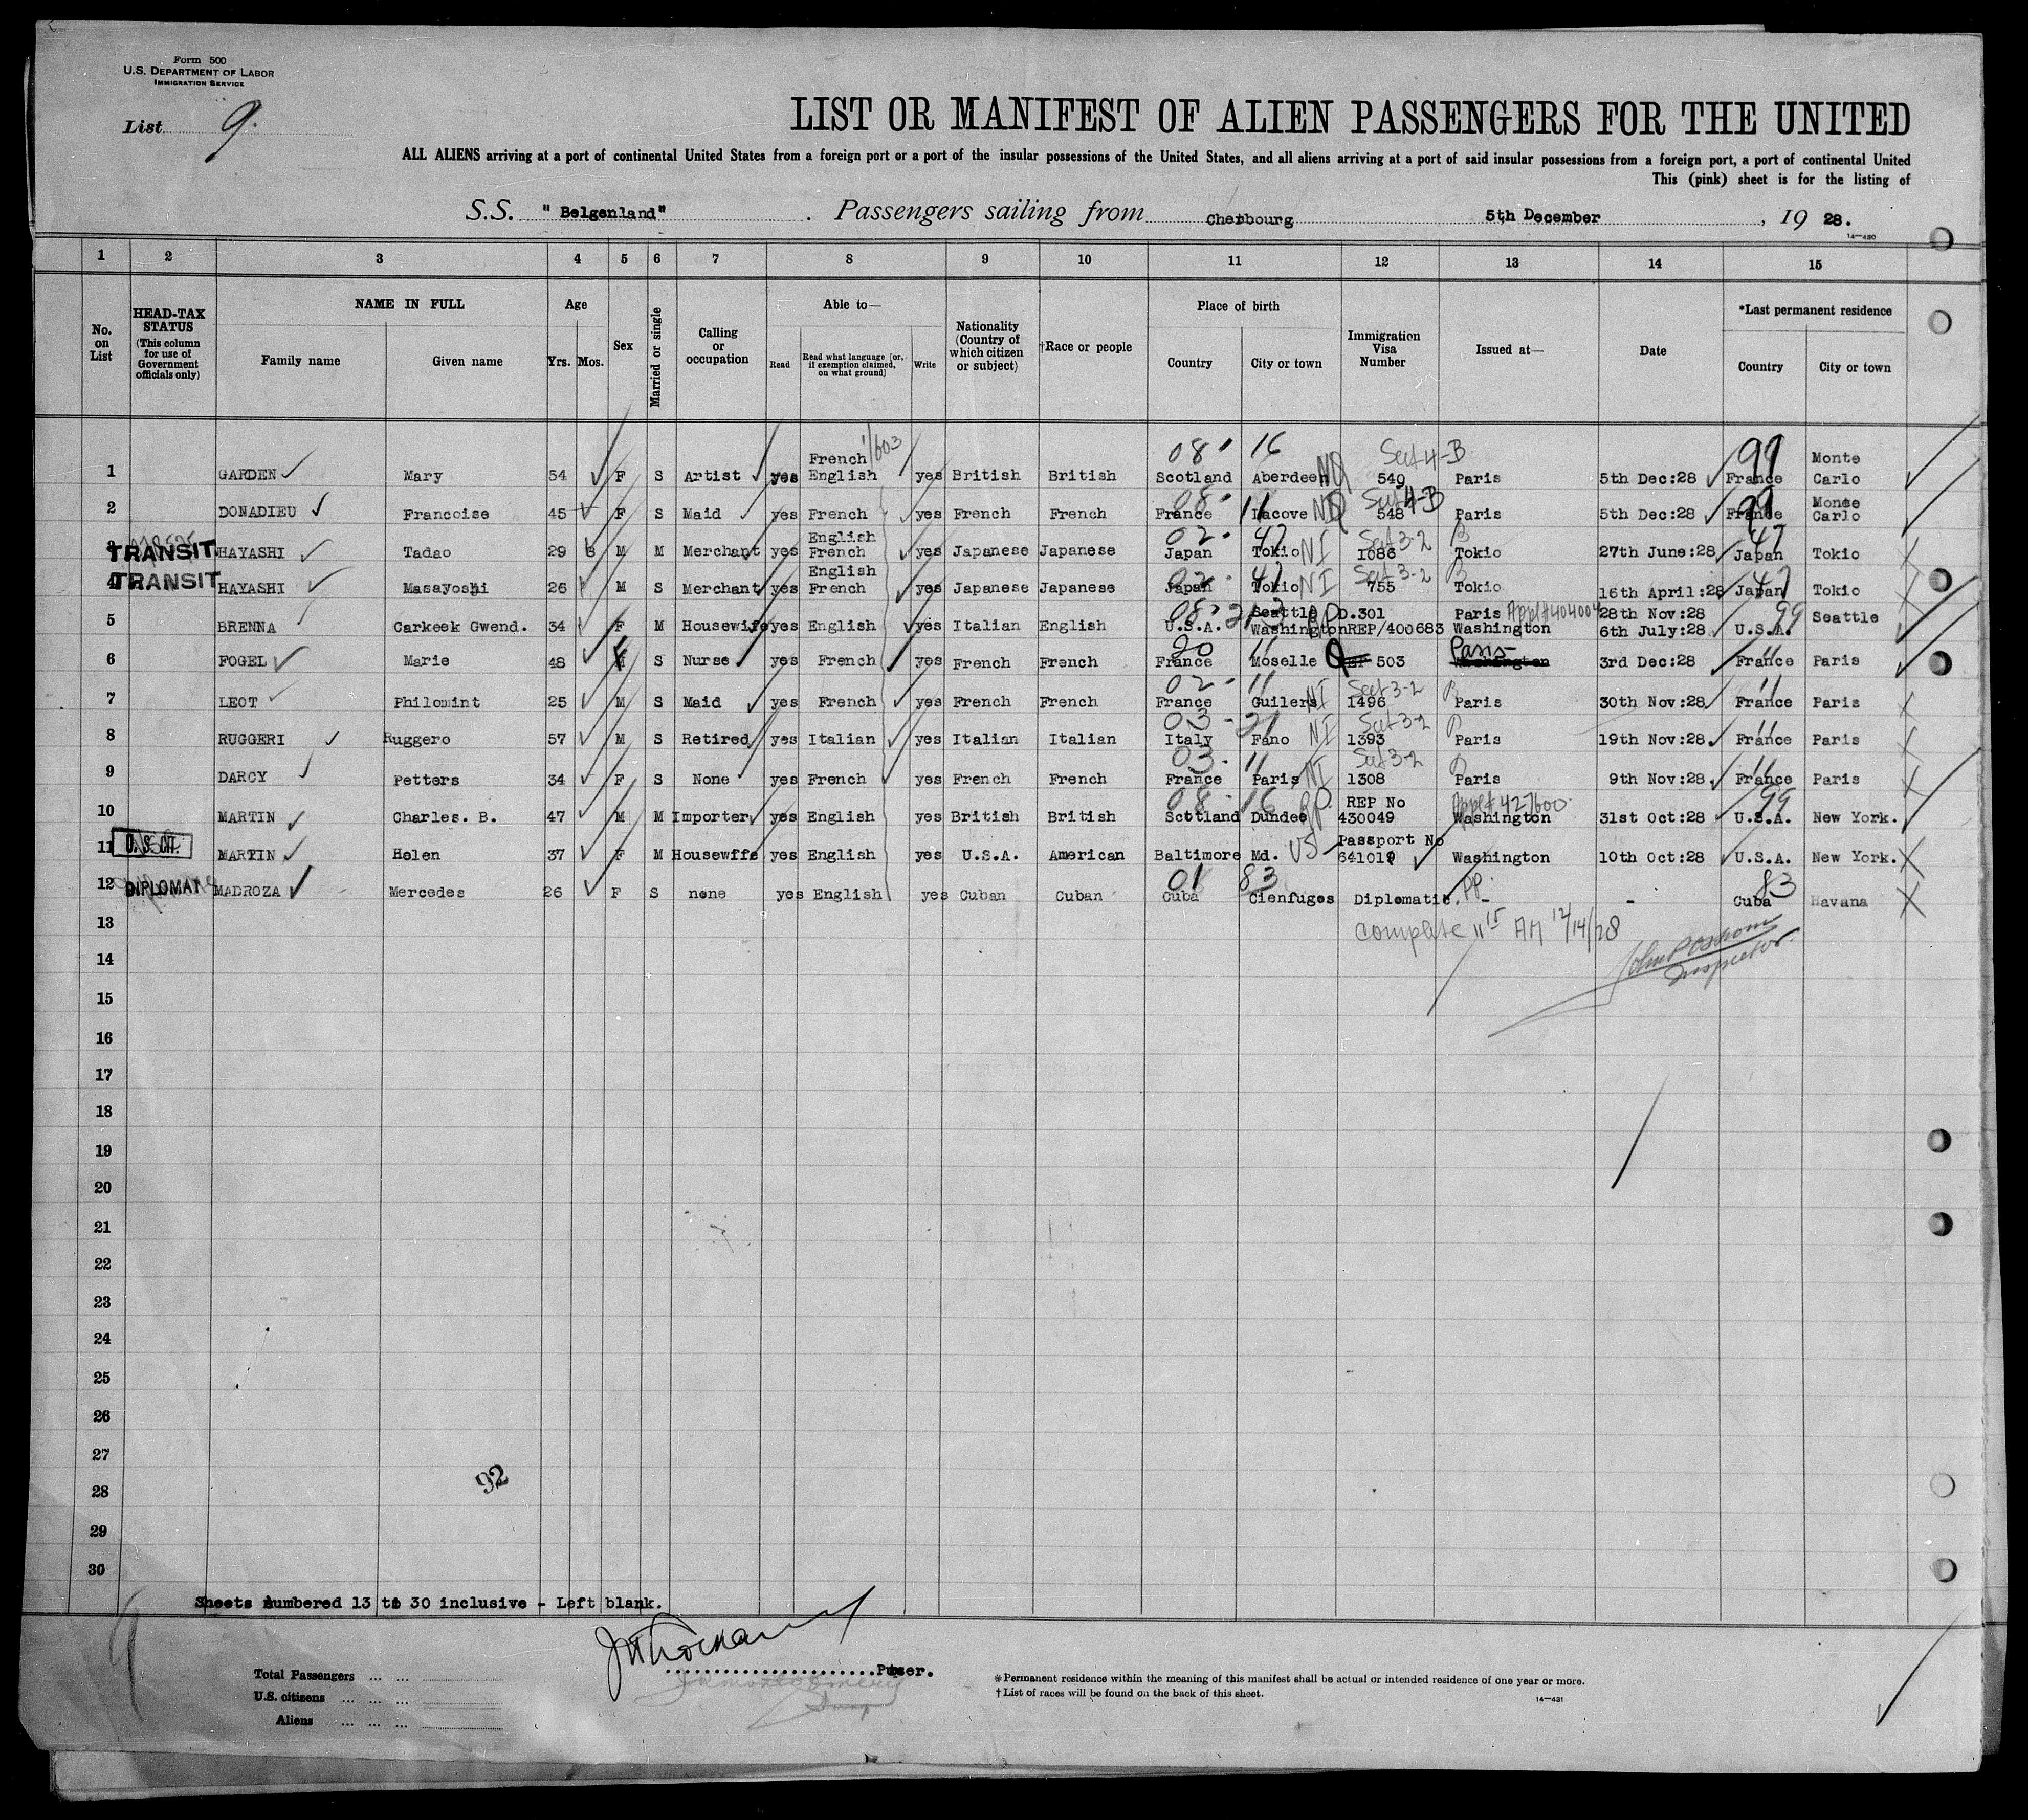 Form 500
U.S. DEPARTMENT OF LABOR
IMMIGRATION SERVICE
List 9.
LIST OR MANIFEST OF ALIEN PASSENGERS FOR THE UNITED
ALL ALIENS arriving at a port of continental United States from a foreign port or a port of the insular possessions of the United States, and all aliens arriving at a port of said insular possessions from a foreign port, a port of continental United
This (pink) sheet is for the listing of
S.S. "Belgenland" . Passengers sailing from Cherbourg 5th December, 19 28.
14—430
1 2 3 4 5 6 7 8 9 10 11 12 13 14 15
No. on List
HEAD-TAX STATUS (This column for use of Government officials only)
NAME IN FULL Family name Given name
Age Yrs. Mos.
Sex
Married or single
Calling or occupation
Able to— Read Read what language [or, if exemption claimed, on what ground] Write
Nationality (Country of which citizen or subject)
†Race or people
Place of birth Country City or town
Immigration Visa Number
Issued at—
Date
*Last permanent residence Country City or town
08 16 Sect 4-B 99
1 GARDEN Mary 54 F S Artist yes French English yes British British Scotland Aberdeen 549 Paris 5th Dec:28 France Monte Carlo
08 11 Sect 4-B 99
2 DONADIEU Francoise 45 F S Maid yes French yes French French France Lacove 548 Paris 5th Dec:28 France Monte Carlo
02 47 NI Sect 3-2 47
3 TRANSIT HAYASHI Tadao 29 M M Merchant yes English French yes Japanese Japanese Japan Tokio 1086 Tokio 27th June:28 Japan Tokio
02 47 NI Sect 3-2 47
4 TRANSIT HAYASHI Masayoshi 26 M S Merchant yes English French yes Japanese Japanese Japan Tokio 755 Tokio 16th April:28 Japan Tokio
5 BRENNA Carkeek Gwend. 34 F M Housewife yes English yes Italian English U.S.A. Seattle Washington D.301 REP/400683 Paris Washington Appl# 404004 28th Nov:28 6th July:28 U.S.A. 99 Seattle
20 11 Paris 11
6 FOGEL Marie 48 F S Nurse yes French yes French French France Moselle 503 Washington 3rd Dec:28 France Paris
02 11 NI Sect 3-2 11
7 LEOT Philomint 25 M S Maid yes French yes French French France Guilers 1496 Paris 30th Nov:28 France Paris
03 21 NI Sect 3-2 11
8 RUGGERI Ruggero 57 M S Retired yes Italian yes Italian Italian Italy Fano 1393 Paris 19th Nov:28 France Paris
03 11 NI Sect 3-2 11
9 DARCY Petters 34 F S None yes French yes French French France Paris 1308 Paris 9th Nov:28 France Paris
08 16 Appl# 427600 99
10 MARTIN Charles. B. 47 M M Importer yes English yes British British Scotland Dundee REP No 430049 Washington 31st Oct:28 U.S.A. New York.
11 U.S. CIT. MARTIN Helen 37 F M Housewffe yes English yes U.S.A. American Baltimore Md. US Passport No 641019 Washington 10th Oct:28 U.S.A. New York.
01 83 PP. 83
12 DIPLOMAT MADROZA Mercedes 26 F S none yes English yes Cuban Cuban Cuba Cienfuges Diplomatic. - - Cuba Havana
13 complete 11 15 AM 12/14/28
14 Inspector
15
16
17
18
19
20
21
22
23
24
25
26
27
92
28
29
30
Sheets numbered 13 to 30 inclusive - Left blank.
Purser.
Total Passengers ... ...
U.S. citizens ... ... ...
Aliens ... ... ...
*Permanent residence within the meaning of this manifest shall be actual or intended residence of one year or more.
†List of races will be found on the back of this sheet.
14—431